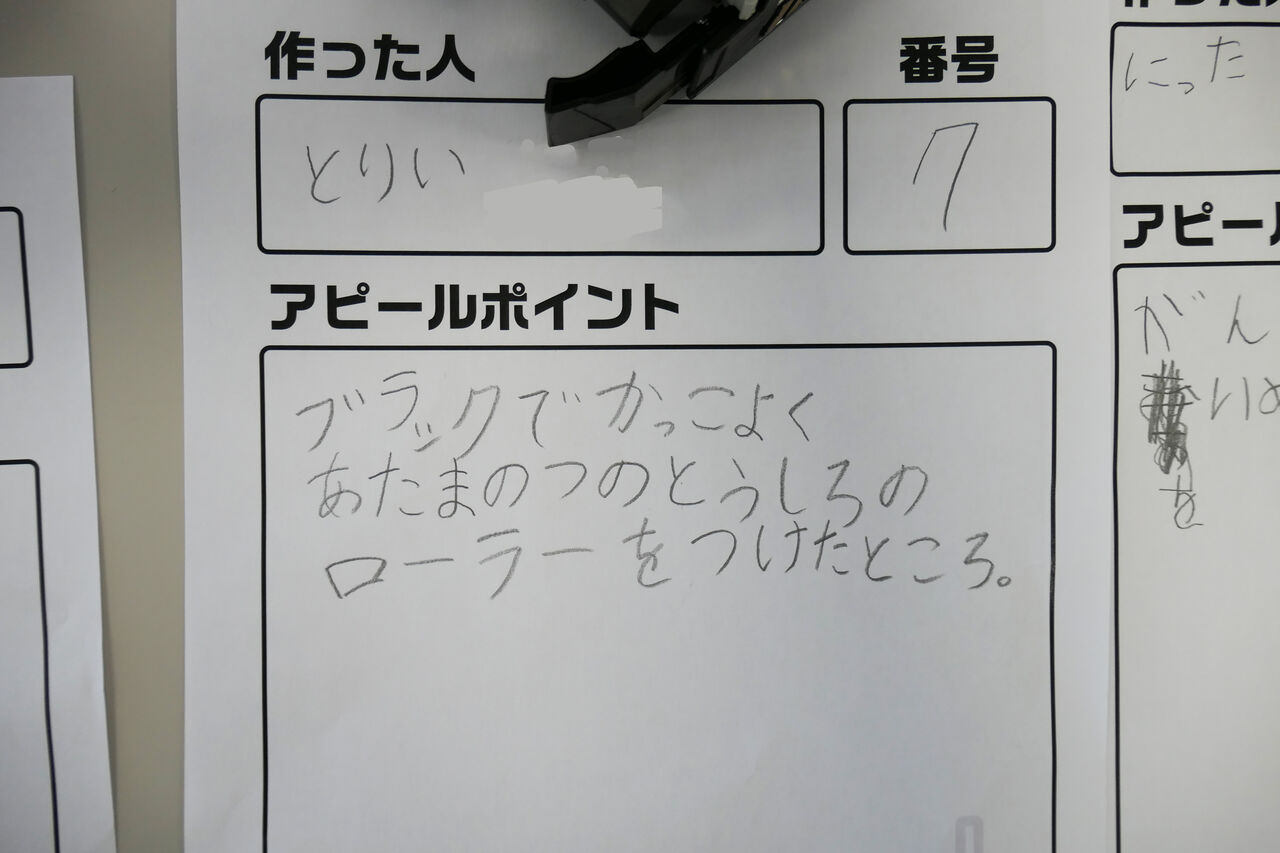 作った人
とりい
番号
7
アピールポイント
ブラックでかっこよく
あたまのつのとうしろの
ローラーをつけたところ。
にった
アピール
がん